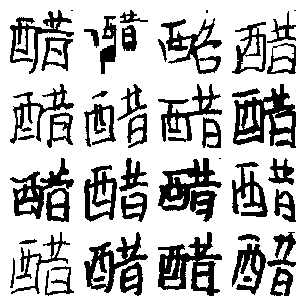 醋醋醋
醋醋醋醋
醋醋醋醋
醋醋醋醋